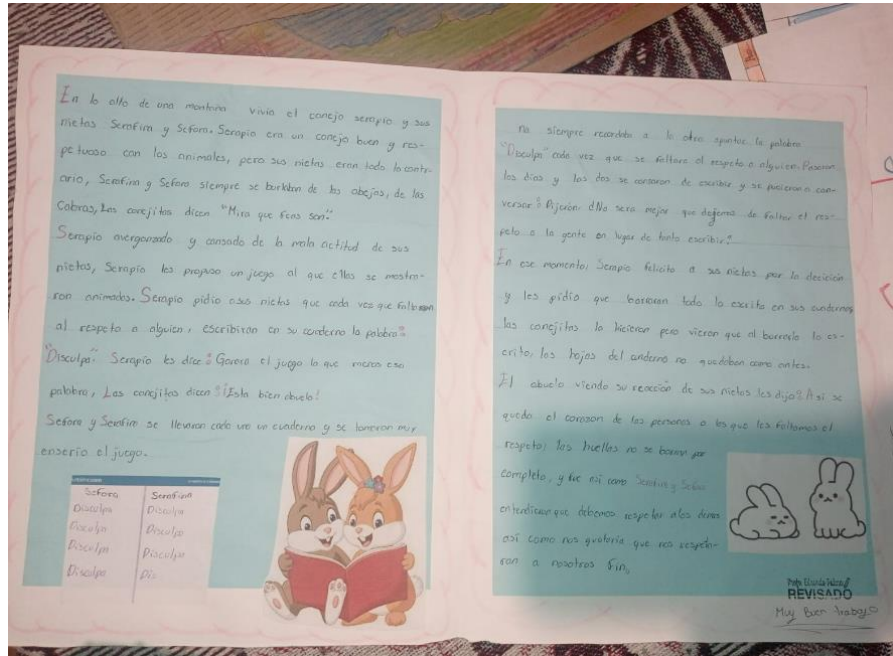 En lo alto de una montaña vivía el conejo serapio y sus
nietas Serafina y Sefora. Serapio era un conejo buen y res-
petuoso con los animales, pero sus nietas eran todo lo contr-
ario, Serafina y Sefora siempre se burlaban de las abejas, de las
Cobras, Las conejitas dicen "Mira que feas son".
Serapio avergonzado y cansado de la mala actitud de sus
nietas, Serapio les propuso un juego al que ellas se mostra-
ron animadas. Serapio pidio a sus nietas que cada vez que faltaran
al respeto a alguien, escribiran en su cuaderno la palabra:
"Disculpa". Serapio les dice: Ganara el juego la que menos esa
palabra, Las conejitas dicen: ¡Esta bien abuelo!
Sefora y Serafina se llevaron cada uno un cuaderno y se tomaron muy
enserio el juego.
Sefora Serafina
Disculpa Disculpa
Disculpa Disculpa
Disculpa Disculpa
Disculpa Dis
na siempre recordaba a la otra apuntar la palabra
"Disculpa" cada vez que se faltara al respeto a alguien. Pasaron
los días y las dos se cansaron de escribir y se pusieron a con-
versar: Dijeron: ¿No sera mejor que dejemos de faltar el res-
peto a la gente en lugar de tanto escribir?
En ese momento, Serapio felicito a sus nietas por la decición
y les pidio que borraran todo lo escrito en sus cuadernos
las conejitas lo hicieron pero vieron que al borrarlo lo es-
crito, las hojas del cuaderno no quedaban como antes.
El abuelo viendo su reacción de sus nietas les dijo: Asi se
queda el corazon de las personas a las que les faltamos el
respeto, las huellas no se borran por
completo, y fue asi como Serafina y Sefora
entendieron que debemos respetar a los demas
así como nos gustaría que nos respeta-
ran a nosotros Fin.
REVISADO
Muy Buen trabajo